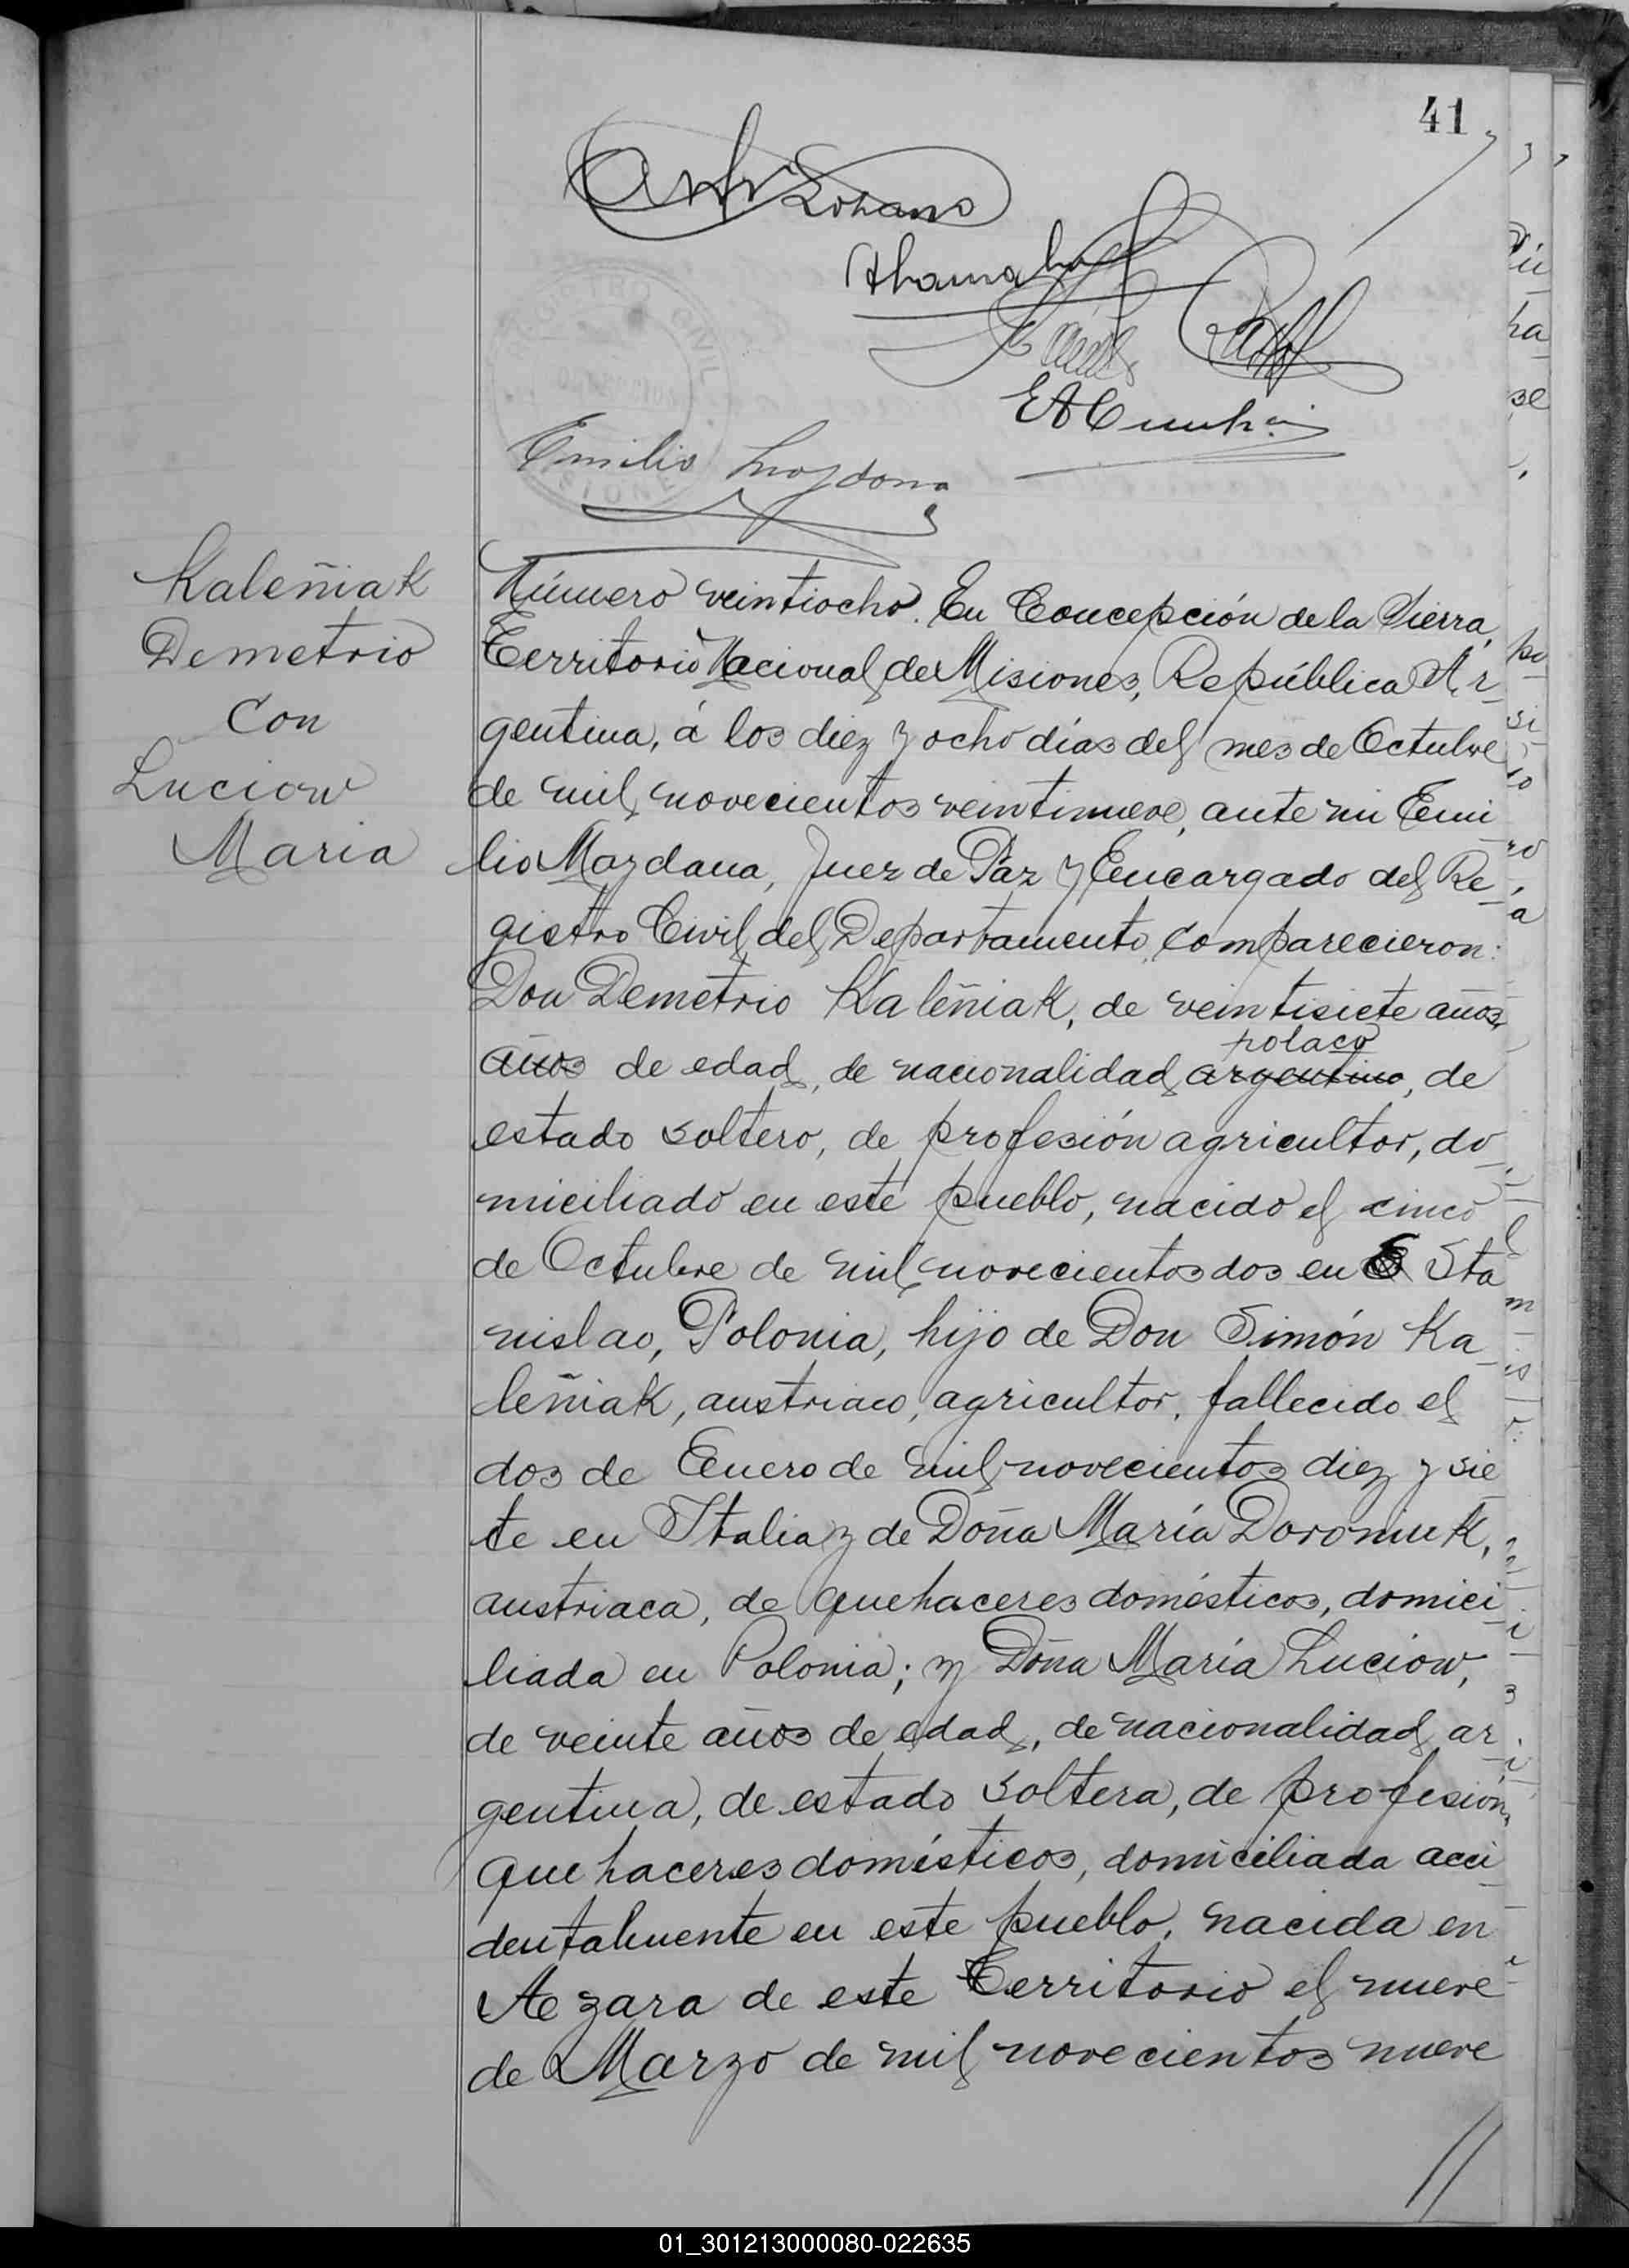 41
Lozano
EACunha
Emilio Mazdana
Kaleñiak
Demetrio
Con
Luciow
Maria
Número veintiocho. En Concepción de la Sierra,
Territorio Nacional de Misiones, República Ar-
gentina, á los diez y ocho días del mes de Octubre
de mil novecientos veintinueve, ante mi Emi
lio Mazdana, Juez de Paz y Encargado del Re-
gistro Civil del Departamento, comparecieron:
Don Demetrio Kaleñiak, de veintisiete años,
polaco
años de edad, de nacionalidad argentino, de
estado soltero, de profesión agricultor, do-
miciliado en este pueblo, nacido el cinco
de Octubre de mil novecientos dos en Sta
nislao, Polonia, hijo de Don Simón Ka-
leñiak, austriaco, agricultor, fallecido el
dos de Enero de mil novecientos diez y sie-
te en Italia y de Doña María Doroniuk,
austriaca, de quehaceres domésticos, domici-
liada en Polonia; y Doña María Luciow,
de veinte años de edad, de nacionalidad ar-
gentina, de estado soltera, de profesión,
quehaceres domésticos, domiciliada acci-
dentalmente en este pueblo, nacida en
Azara de este Territorio el nueve
de Marzo de mil novecientos nueve
//
01_301213000080-022635